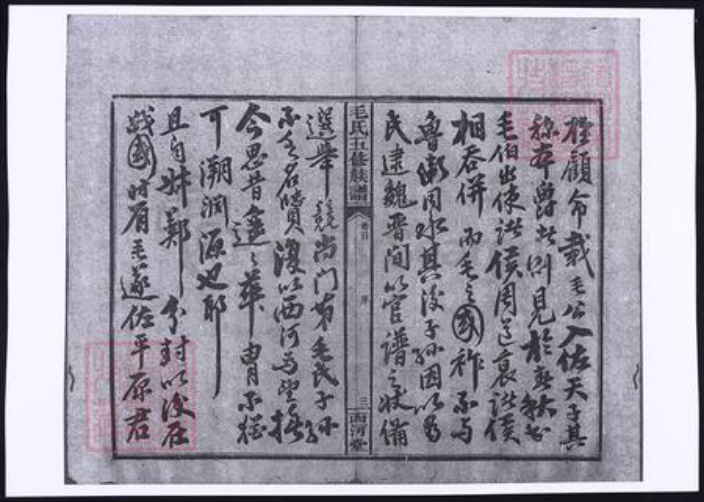 權顧命載毛公入佐天子其
稱本爵者則見於春秋書
毛伯出使諸侯周道衰諸侯
相吞併而毛之國祚不与
魯衛同永其後子孫因以為
氏逮魏晉間以官譜之狀備
毛氏五修族譜
卷首
序
三
西河堂
選舉 競尚门第毛氏子孫
不乏名賢復以西河為望
今思昔遙遙華胄不猶
可溯洄源也耶
且自姓鄭 分封以後在
戰國時有毛遂佐平原君